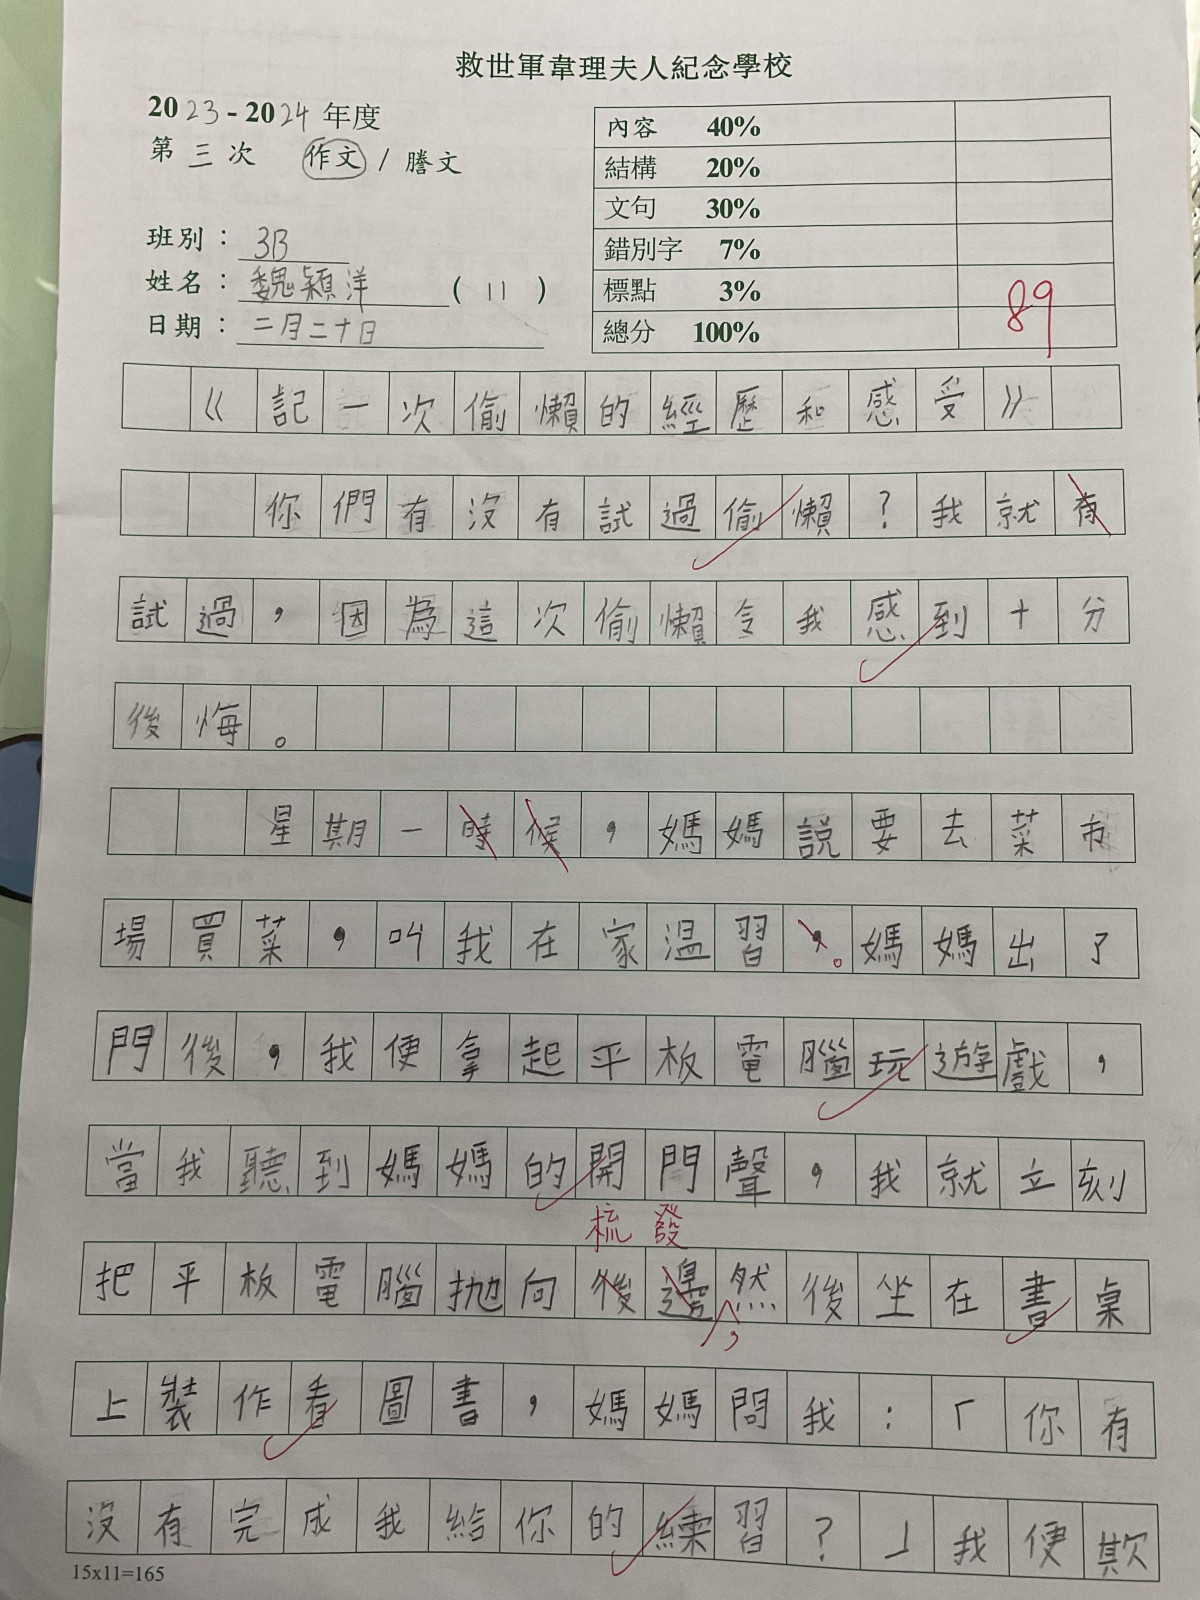 救世軍韋理夫人紀念學校
2023-2024年度
第三次 作文 / 謄文
班別：3B
姓名：魏穎洋 (11)
日期：二月二十日
內容 40%
結構 20%
文句 30%
錯別字 7%
標點 3%
總分 100% 89
《記一次偷懶的經歷和感受》
你們有沒有試過偷懶？我就有
試過，因為這次偷懶令我感到十分
後悔。
星期一時候，媽媽說要去菜市
場買菜，叫我在家溫習，。媽媽出了
門後，我便拿起平板電腦玩遊戲，
當我聽到媽媽的開門聲，我就立刻
梳發
把平板電腦拋向後邊，然後坐在書桌
上裝作看圖書，媽媽問我：「你有
沒有完成我給你的練習？」我便欺
15x11=165